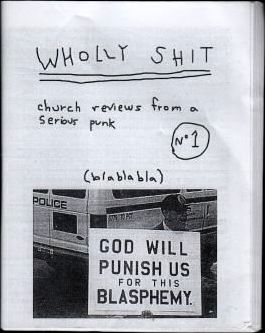 WHOLLY SHIT
church reviews from a
serious punk
Nº 1
(blablabla)
POLICE
GOD WILL
PUNISH US
FOR THIS
BLASPHEMY.